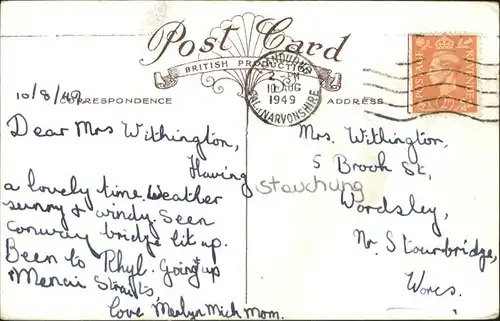 Post Card
BRITISH PRODUCTION
10/8/49
CORRESPONDENCE
ADDRESS
LLANDUDNO
2 - PM
10 AUG
1949
CAERNARVONSHIRE
POSTAGE
REVENUE
Dear Mrs Withington,
Having
a lovely time. Weather
sunny & windy. Seen
conway bridge lit up.
Been to Rhyl. Going up
Menai Straits
love Merlyn Mick Mom.
Stauchung
Mrs. Withington,
5 Brook St,
Wordsley,
Nr. Stourbridge,
Worcs.